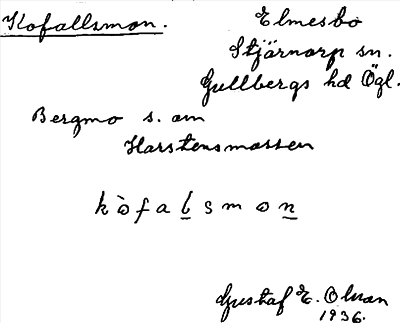 Kofallsmon.
Elmesbo
Stjärnorp sn.
Gullbergs hd Ögl.
Bergmo s. om
Harstensmossen
kòfalsmon
Gustaf E. Olson
1936.